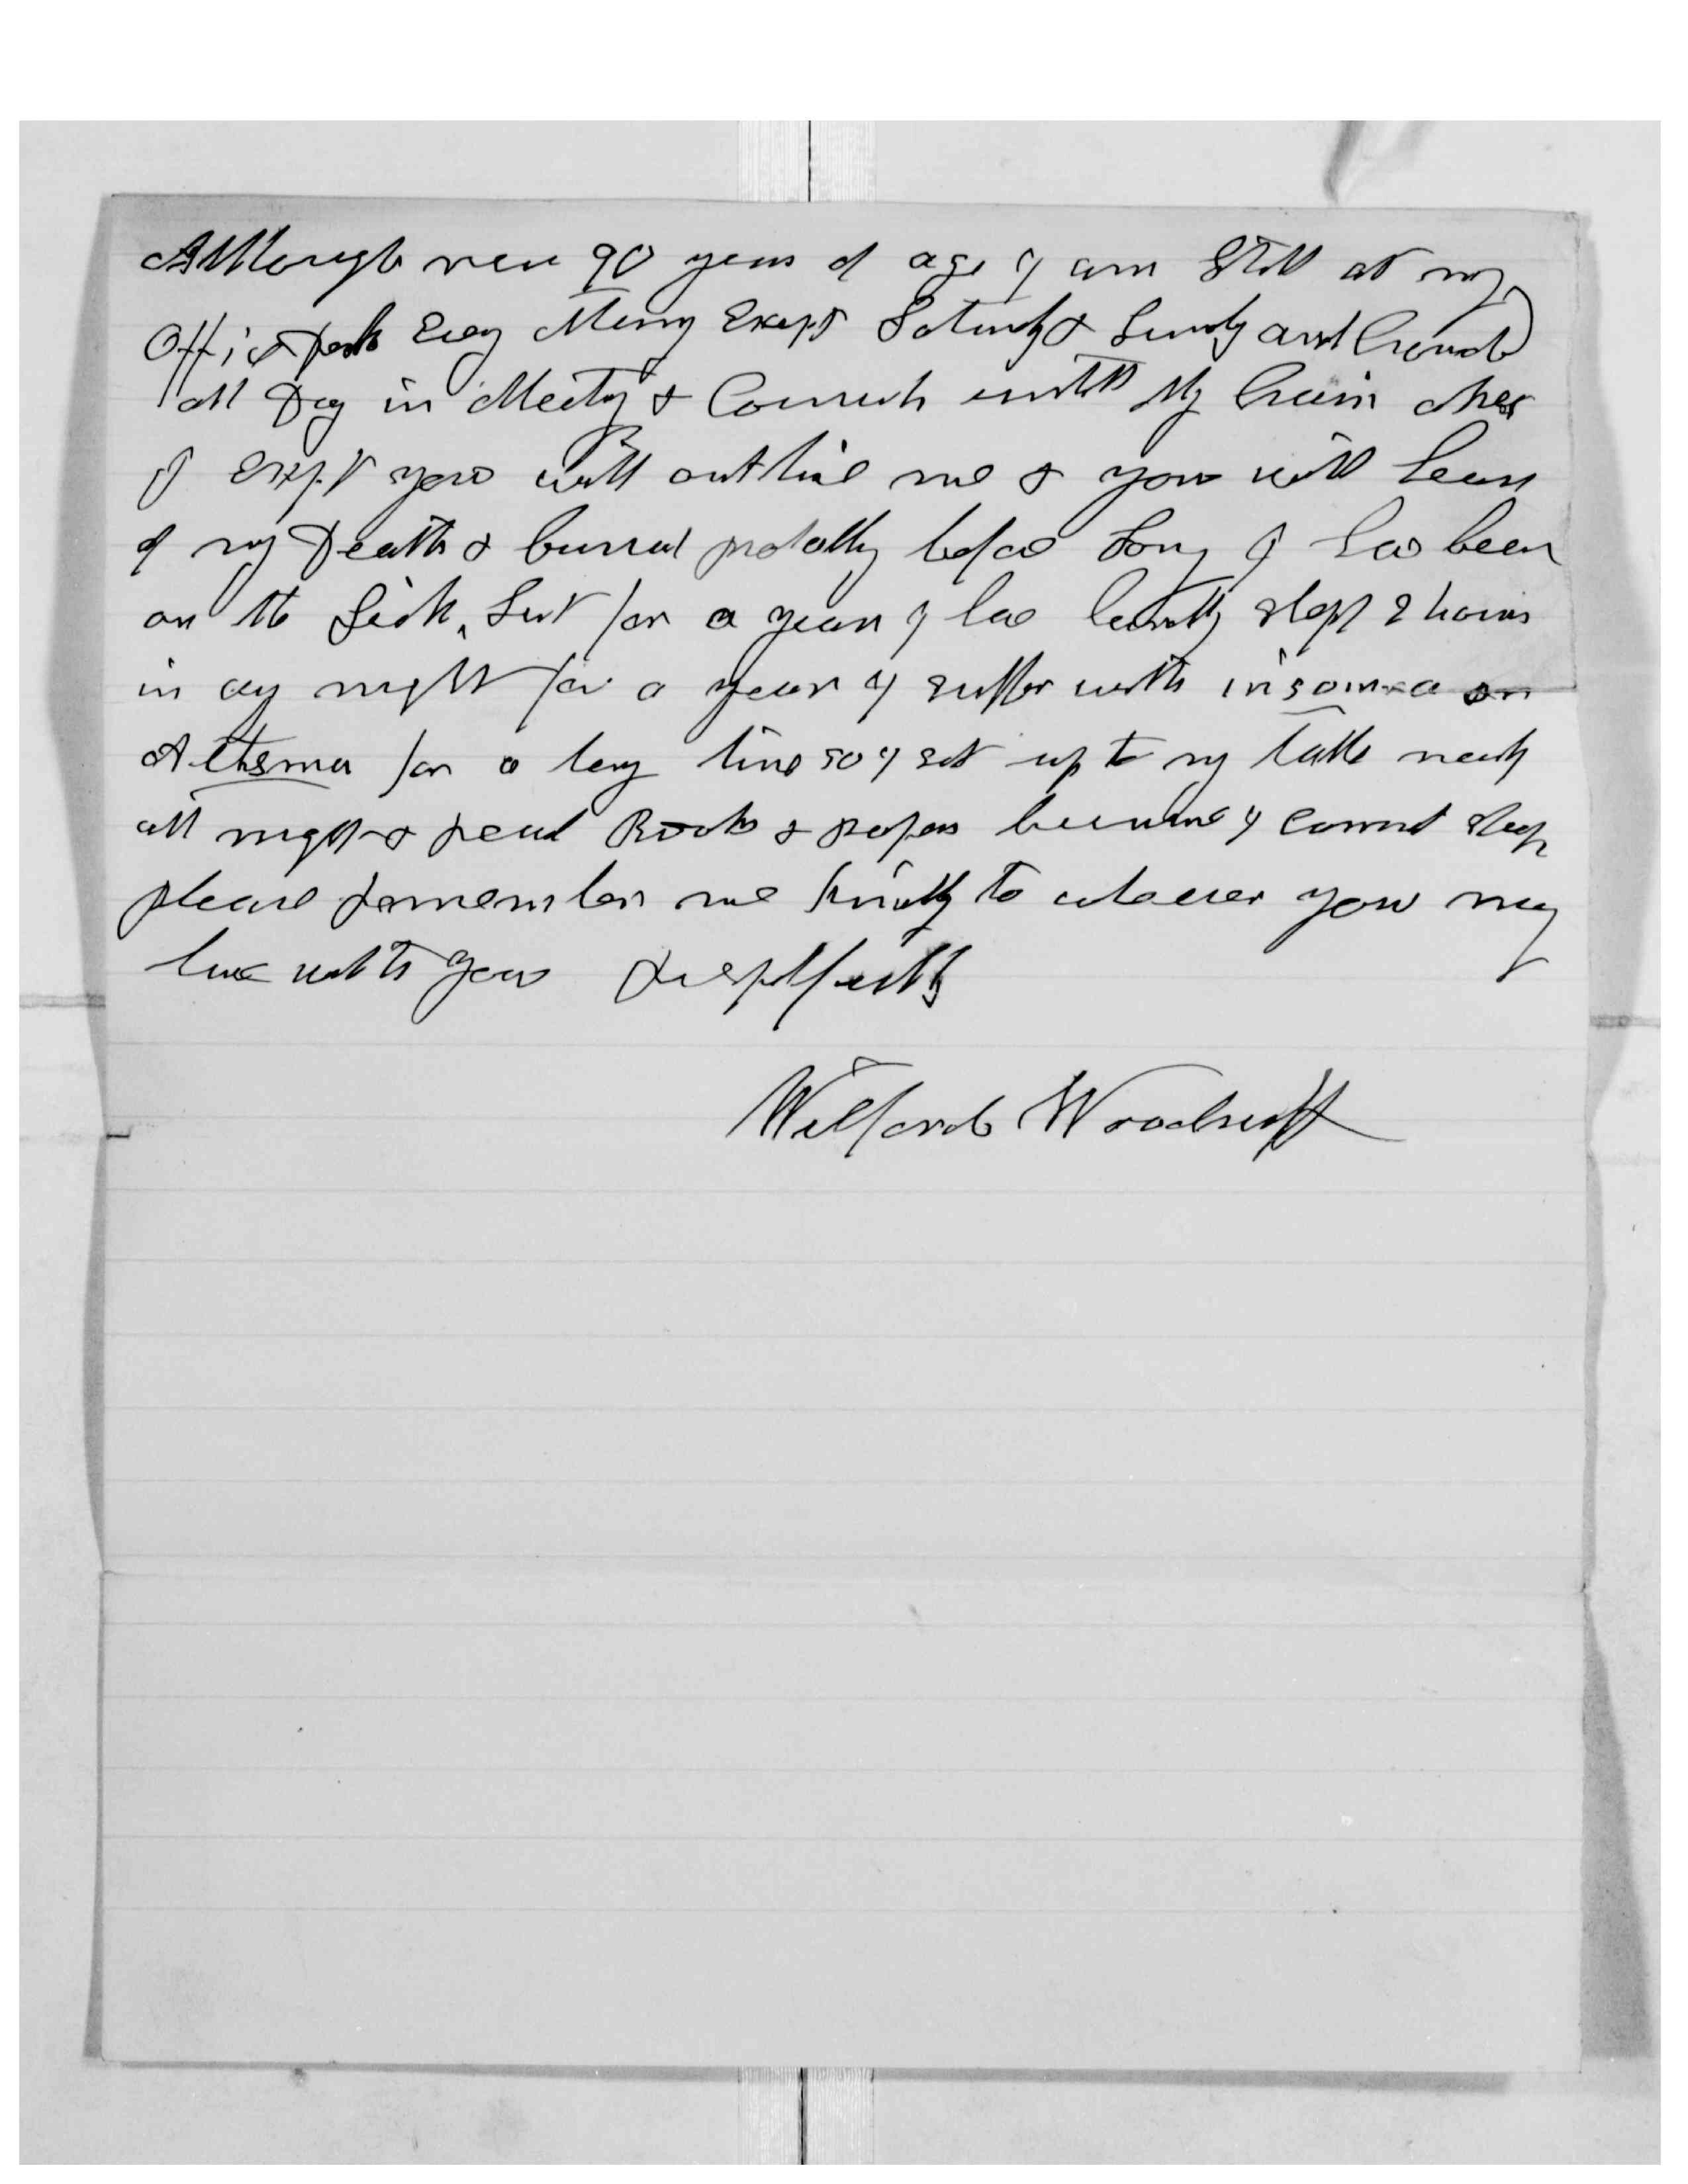 Although near 90 years of age I am still at my
Office Desk Evry Morning Except Saturdy & Sundy and Crouded
all Day in Meeting & Councils with My
I Expt you will outlive me & you will hear
of my Death & burial probably before Long I have been
on the Sick List for a year I have hardly slept 2 hours
in any night for a year I suffer with insomnia or
Asthma for a long time so I set up to my table nearly
all night & read Books & papers because I cannot sleep
please remember me kindly to whoever you may
have with you Respectfully
Wilford Woodruff